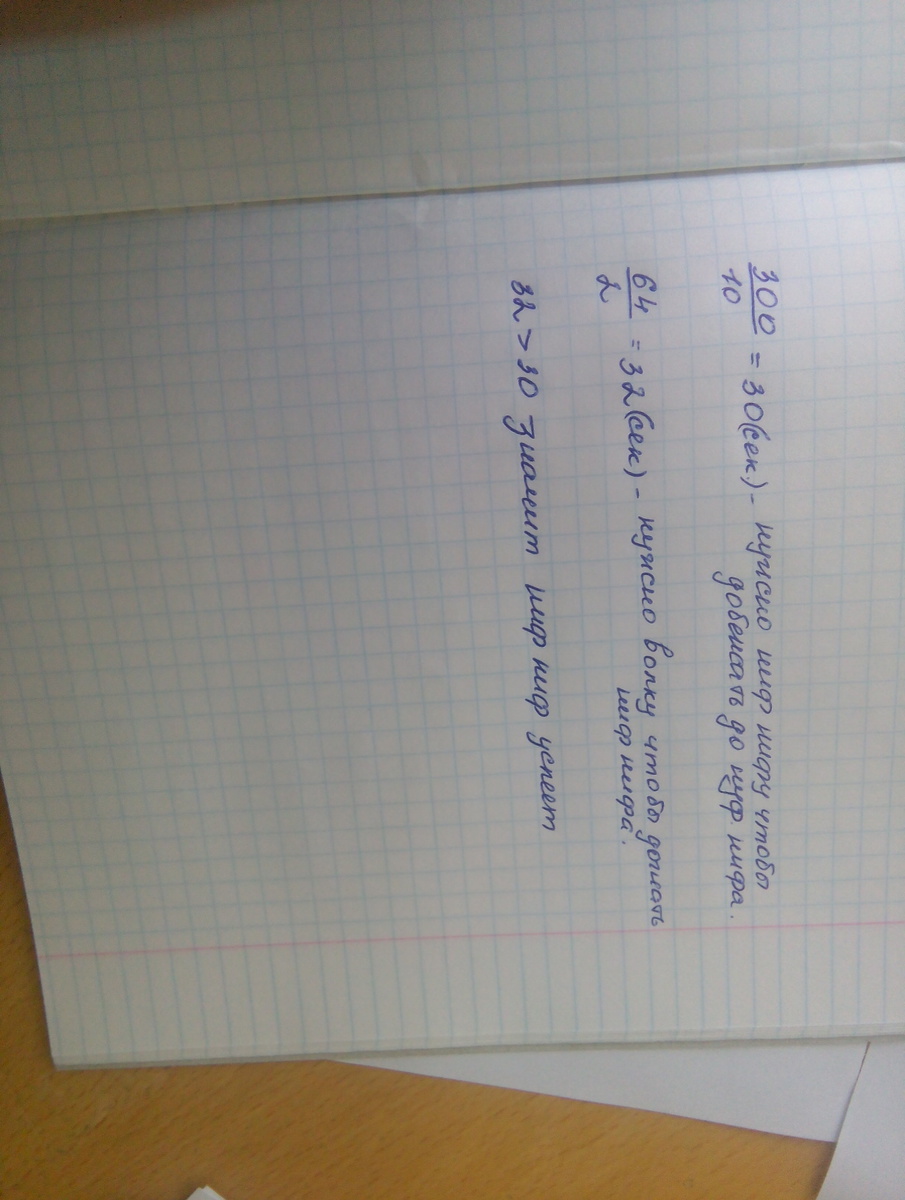 300
10 = 30(сек) - нужно ниф нифу чтобы
добежать до нуф нифа.
64
2 = 32(сек) - нужно волку чтобы догнать
ниф нифа.
32 > 30 Значит ниф ниф успеет